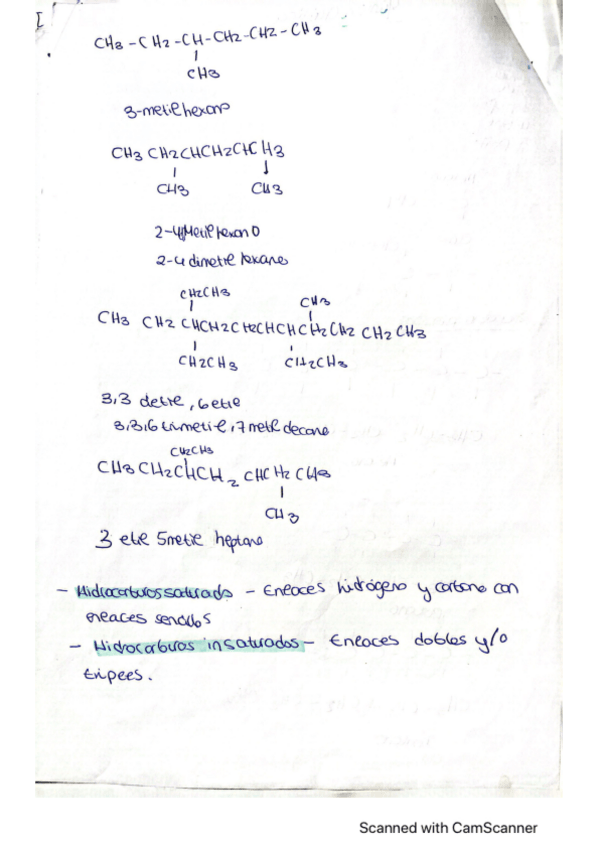 CH3 - CH2 - CH - CH2 - CH2 - CH3
CH3
3-metilhexano
CH3 CH2CHCH2CHCH3
CH3 CH3
2-4 Metil hexano
2-4 dimetil hexano
CH2CH3 CH3
CH3 CH2 CHCH2CH2CHCHCH2CH2 CH2 CH3
CH2CH3 CH2CH3
3,3 detil, 6 etil
3,3,6 trimetil, 7 metil decano
CH2CH3
CH3 CH2CHCH2 CHCH2 CH3
CH3
3 etil 5metil heptano
- Hidrocarburos saturado - Enlaces hidrógeno y carbono con
enlaces sencillos
- Hidrocarburos insaturados - Enlaces dobles y/o
triples.
Scanned with CamScanner